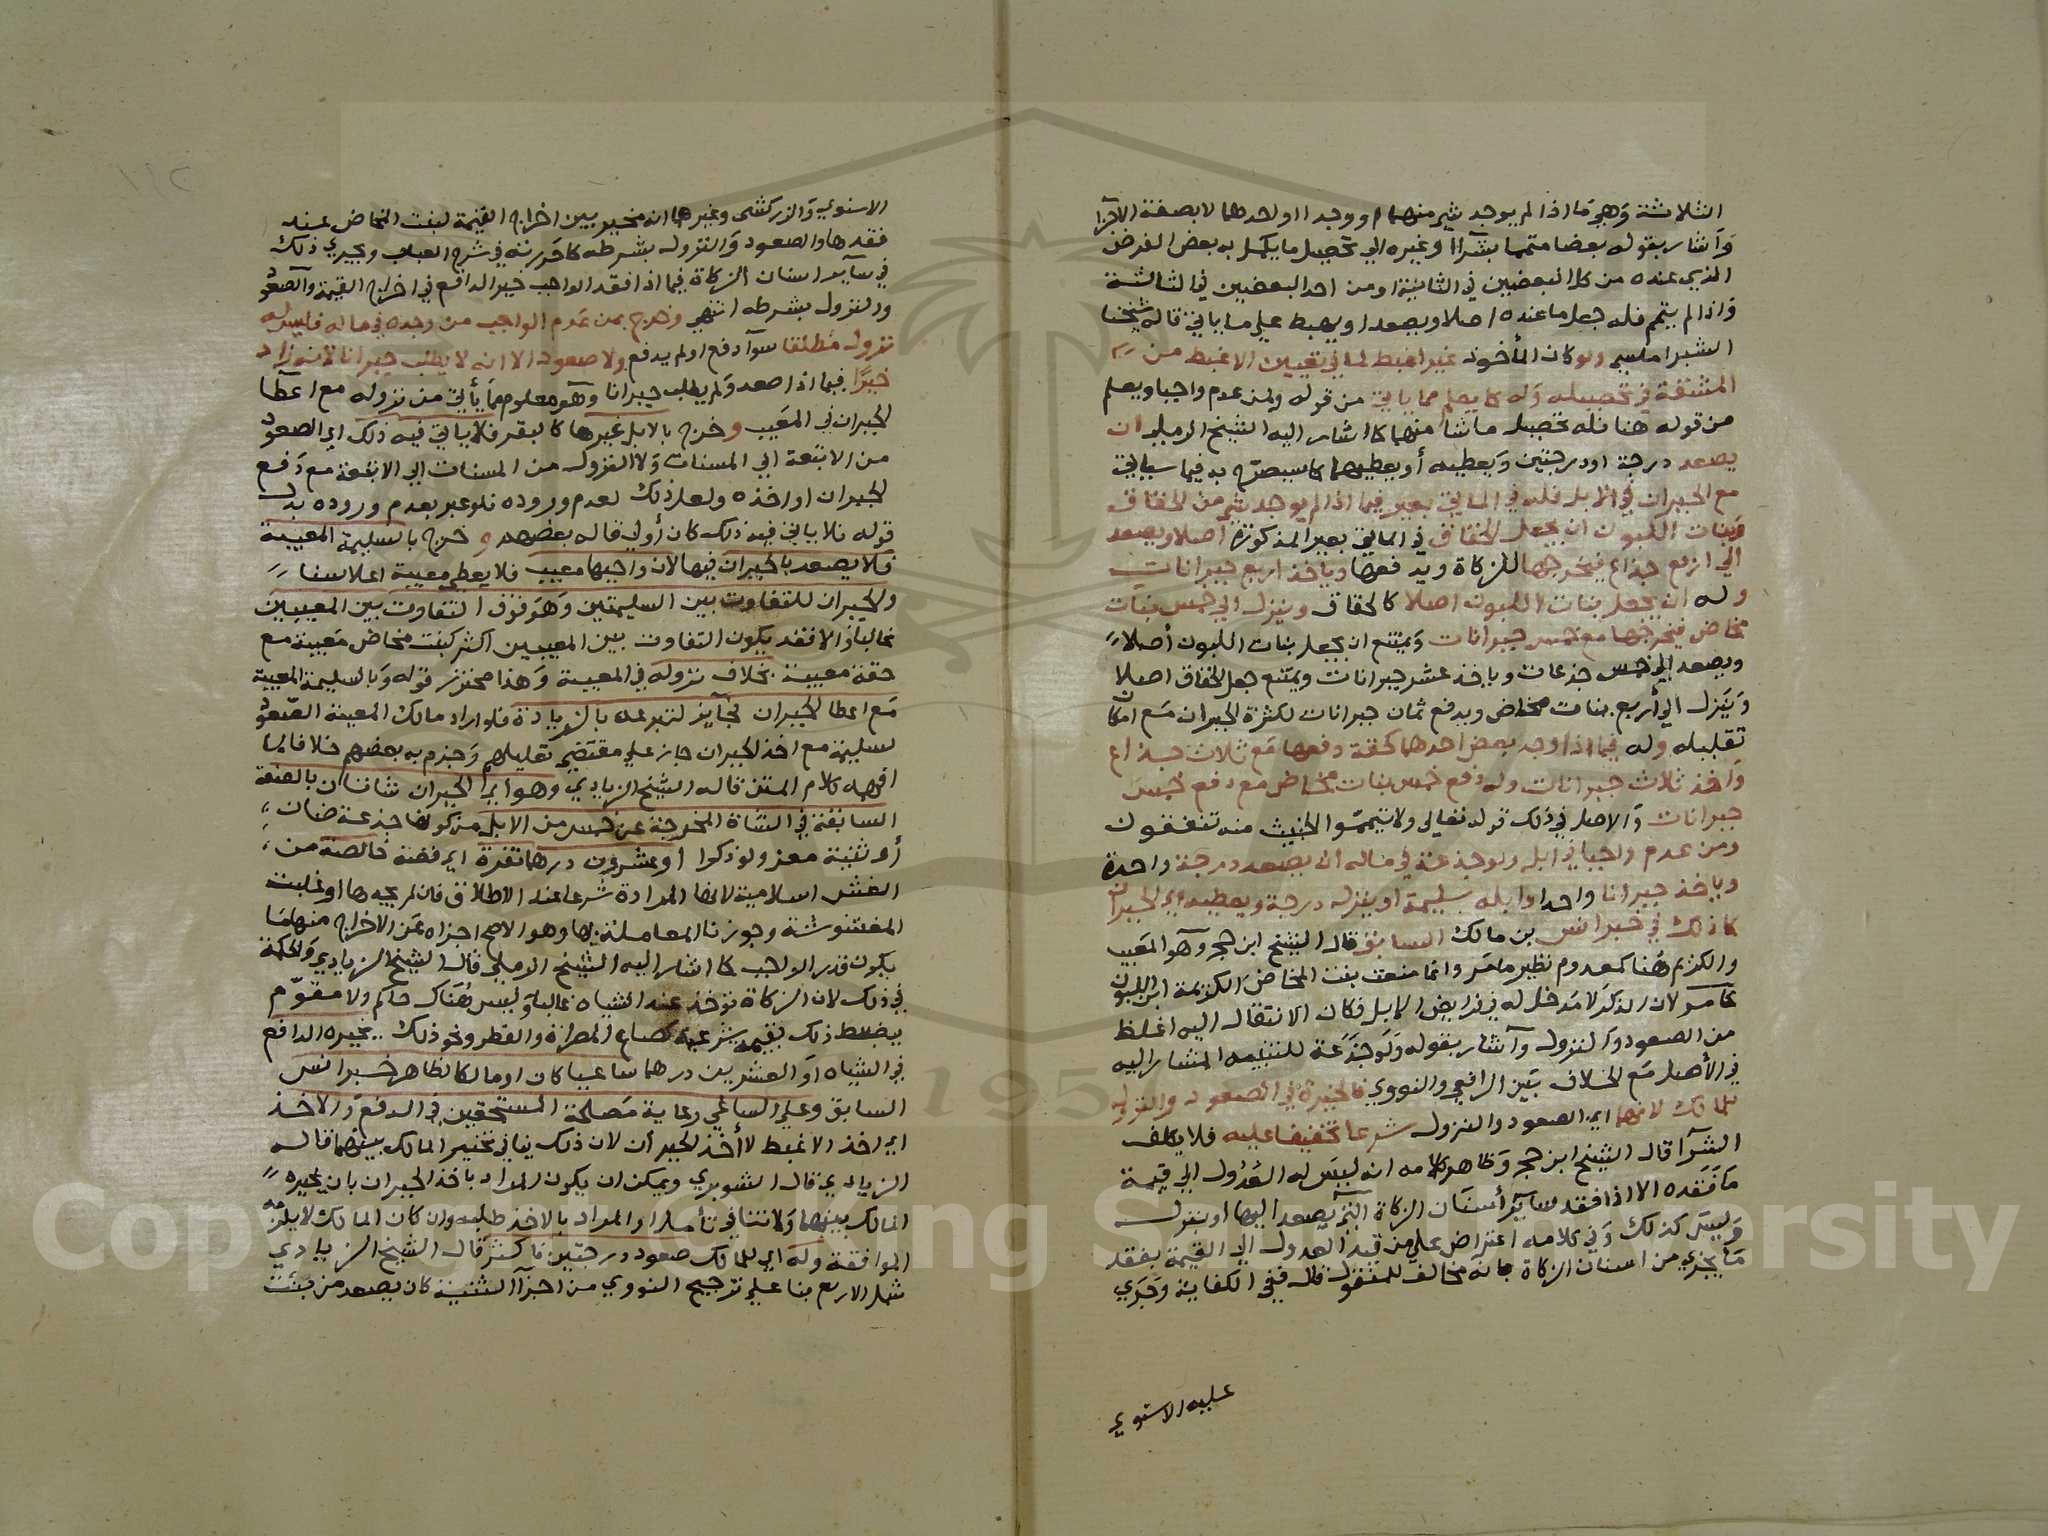 الثلاثة وهي ما اذا لم يوجد شي منهما او وجدا او احدهما لا بصفة الاجزا
واشار بقوله بعضا متمما بشرا او غيره الي تحصيل ما يكمل به بعض الفرض
الذي عنده من كلا البعضين في الثانية او من احد البعضين في الثالثة
واذا لم يتمم فله جعل ما عنده اصلا ويصعد او يهبط علي ما ياتي قاله شيخنا
الشبراملسي ولو كان المأخوذ غير اغبط لما في تعيين الاغبط من
المشقة في تحصيله وله كما يعلم مما ياتي من قوله ولمن عدم واجبا ويعلم
من قوله هنا فله تحصيل ما شأ منهما كما اشار اليه الشيخ الرملي ان
يصعد درجة او درجتين ويعطيه أو يعطيهما كما سيصرح به فيما سياتي
مع الجبران في الابل فله في المايتي بعير فيما اذا لم يوجد شي من الحقاق
وبنات اللبون ان يجعل الحقاق في المايتي بعير المذكورة اصلا ويصعد
الي اربع جذاع فيخرجها للزكاة ويدفعها وياخذ اربع جبرانات
وله ان يجعل بنات اللبون اصلا كالحقاق وينزل الي خمس بنات
مخاض فيخرجها مع خمس جبرانات ويمتنع ان يجعل بنات اللبون أصلا
ويصعد الي خمس جذعات وياخذ عشر جبرانات ويمتنع جعل الحقاق اصلا
وينزل الي أربع بنات مخاض ويدفع ثمان جبرانات لكثرة الجبران مع امكان
تقليله وله فيما اذا وجد بعض احدهما كحقة دفعها مع ثلاث جذاع
واخذ ثلاث جبرانات وله دفع خمس بنات مخاض مع دفع خمس
جبرانات والاصل في ذلك قوله تعالي ولا تيمموا الخبيث منه تنفقون
ومن عدم واجبا في ابله ولو جذعة في ماله ان يصعد درجة واحدة
وياخذ جبرانا واحدا وابله سليمة او ينزل درجة ويعطيه اي الجبران
كما ذلك في خبر انس بن مالك السابق قال الشيخ ابن حجر وآهو المعيب
والكريم هنا كمعدوم نظير ما مر وانما منعت بنت المخاض الكريمة ابن اللبون
كما مر لان الذكر لا مدخل له في فرايض الابل فكان الانتقال اليه اغلظ
من الصعود والنزول وآشار بقوله ولو جذعة للتنبيه المشار اليه
في الأصل مع الخلاف بين الرافعي والنووي فالخيرة في الصعود والنزول
للمالك لانهما اي الصعود والنزول شرعا تخفيفا عليه فلا يكلف
الشرآ قال الشيخ ابن حجر وظاهر كلامه انه ليس له العدول الي قيمة
ما فقده الا اذا فقد ساير أسنان الزكاة التي يصعد اليها او ينزل
وليس كذلك وفي كلامه اعتراض علي من قيد العدول الي القيمة بفقد
ما يجزي من اسنان الزكاة بانه مخالف للمنقول قال في الكفاية وجري
عليه الاسنوي
الاسنوي والزركشي وغيرهما انه مخير بين اخراج القيمة لبنت المخاض عند
فقدها والصعود والنزول بشرطه كما حررته في شرح العباب ويجري ذلك
في ساير اسنان الزكاة فيما اذا فقد الواجب خير الدافع في اخراج القيمة والصعود
والنزول بشرطه انتهي وخرج بمن عدم الواجب من وجده في ماله فليس له
نزول مطلقا سوآ دفع او لم يدفع ولا صعود الا انه لا يطلب جبرانا لانه زاد
خيرًا فيما اذا صعد ولم يطلب جبرانا وهو معلوم مما يأتي من نزوله مع اعطآ
الجبران في المعيب وخرج بالابل غيرها كالبقر فلا ياتي فيه ذلك اي الصعود
من الاتبعة الي المسنات ولا النزول من المسنات الي الاتبعة مع دفع
الجبران او اخذه ولعل ذلك لعدم وروده فلو عبر بعدم وروده بدل
قوله فلا ياتي فيه ذلك كان أولي قاله بعضهم و خرج بالسليمة المعيبة
فلا يصعد بالجبران فيها لان واجبها معيب فلا يعطي معيبة اعلا سنا
والجبران للتفاوت بين السليمتين وهو فوق التفاوت بين المعيبين
غالبا اذ الا فقد يكون التفاوت بين المعيبين اكثر كبنت مخاض معيبة مع
حقة معيبة بخلاف نزوله في المعيبة وهذا محترز قوله وبالسليمة المعيبة
مع اعطا الجبران فجآيز لتبرعه بالزيادة فلو اراد مالك المعيبة الصعود
لسليمة مع اخذ الجبران جاز علي مقتضي تعليلهم وجزم به بعضهم خلافا لما
افهمه كلام المتن قاله الشيخ الزيادي وهو اي الجبران شاتان بالصفة
السابقة في الشاة المخرجة عن خمس من الابل من كونها جذعة ضان
أو ثنية معز ولو ذكرا او عشرون درهما نقرة اي فضة خالصة من
الغش اسلامية لانها المرادة شرعا عند الاطلاق فان لم يجدها او غلبت
المغشوشة وجوزنا المعاملة بها وهو الاصح اجزاه عن الاخراج منها ما
يكون قدر الواجب كما اشار اليه الشيخ الرملي قال الشيخ الزيادي والحكمة
في ذلك لان الزكاة توخذ عند المياه غالبا وليس هناك حاكم ولا مقوم
يضبط ذلك بقيمة شرعية كصاع المصراة والفطر ونحو ذلك بخيره الدافع
في الشياه او العشرين درهما ساعيا كان او مالكا لظاهر خبر انس
السابق وعلي الساعي رعاية مصلحة المستحقين في الدفع والاخذ
اي اخذ الاغبط لا أخذ الجبرأن لان ذلك ينافي تخيير المالك بينهما قاله
الزيادي قال الشوبري ويمكن ان يكون المراد باخذ الجبران بان يخيره
المالك بينهما ولا تنافي تأمل او المراد بالاخذ طلبه وان كان المالك لا يلزمه
الموافقة وله اي للمالك صعود درجتين فاكثر قال الشيخ الزيادي
شمل الاربع بنا علي ترجيح النووي من اجزآ الثنية كان يصعد من بنت